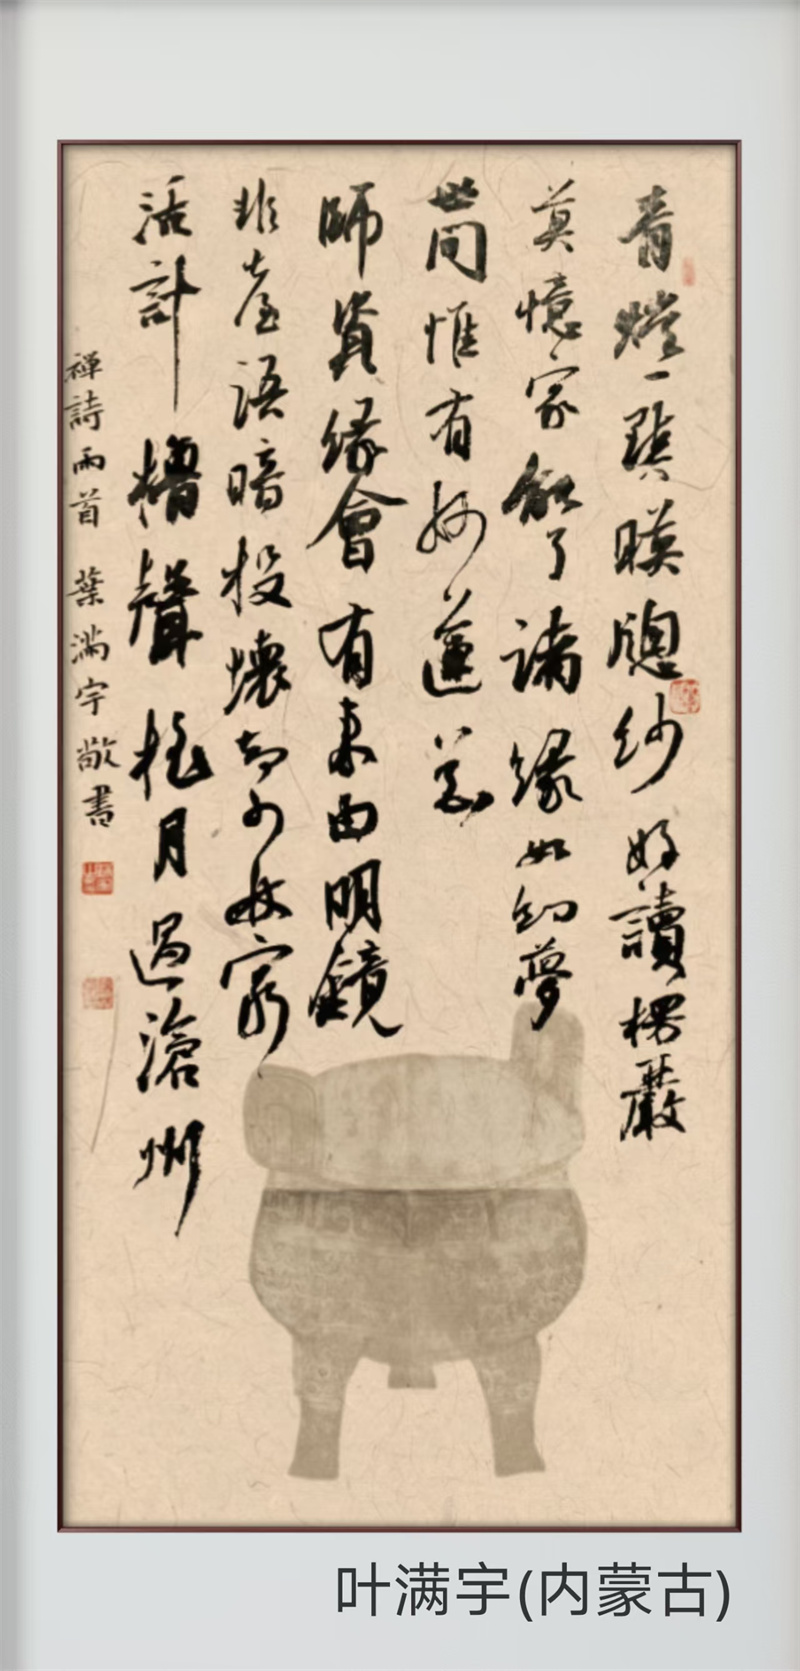 青燈一點映牕紗好讀楞嚴
莫憶家能了諸緣如幻夢
世間惟有妙蓮花
師資緣會有來由明鏡
非臺語暗投壞却少林窮
活計櫓聲搖月過滄州
禪詩兩首 葉滿宇敬書
叶满宇(内蒙古)